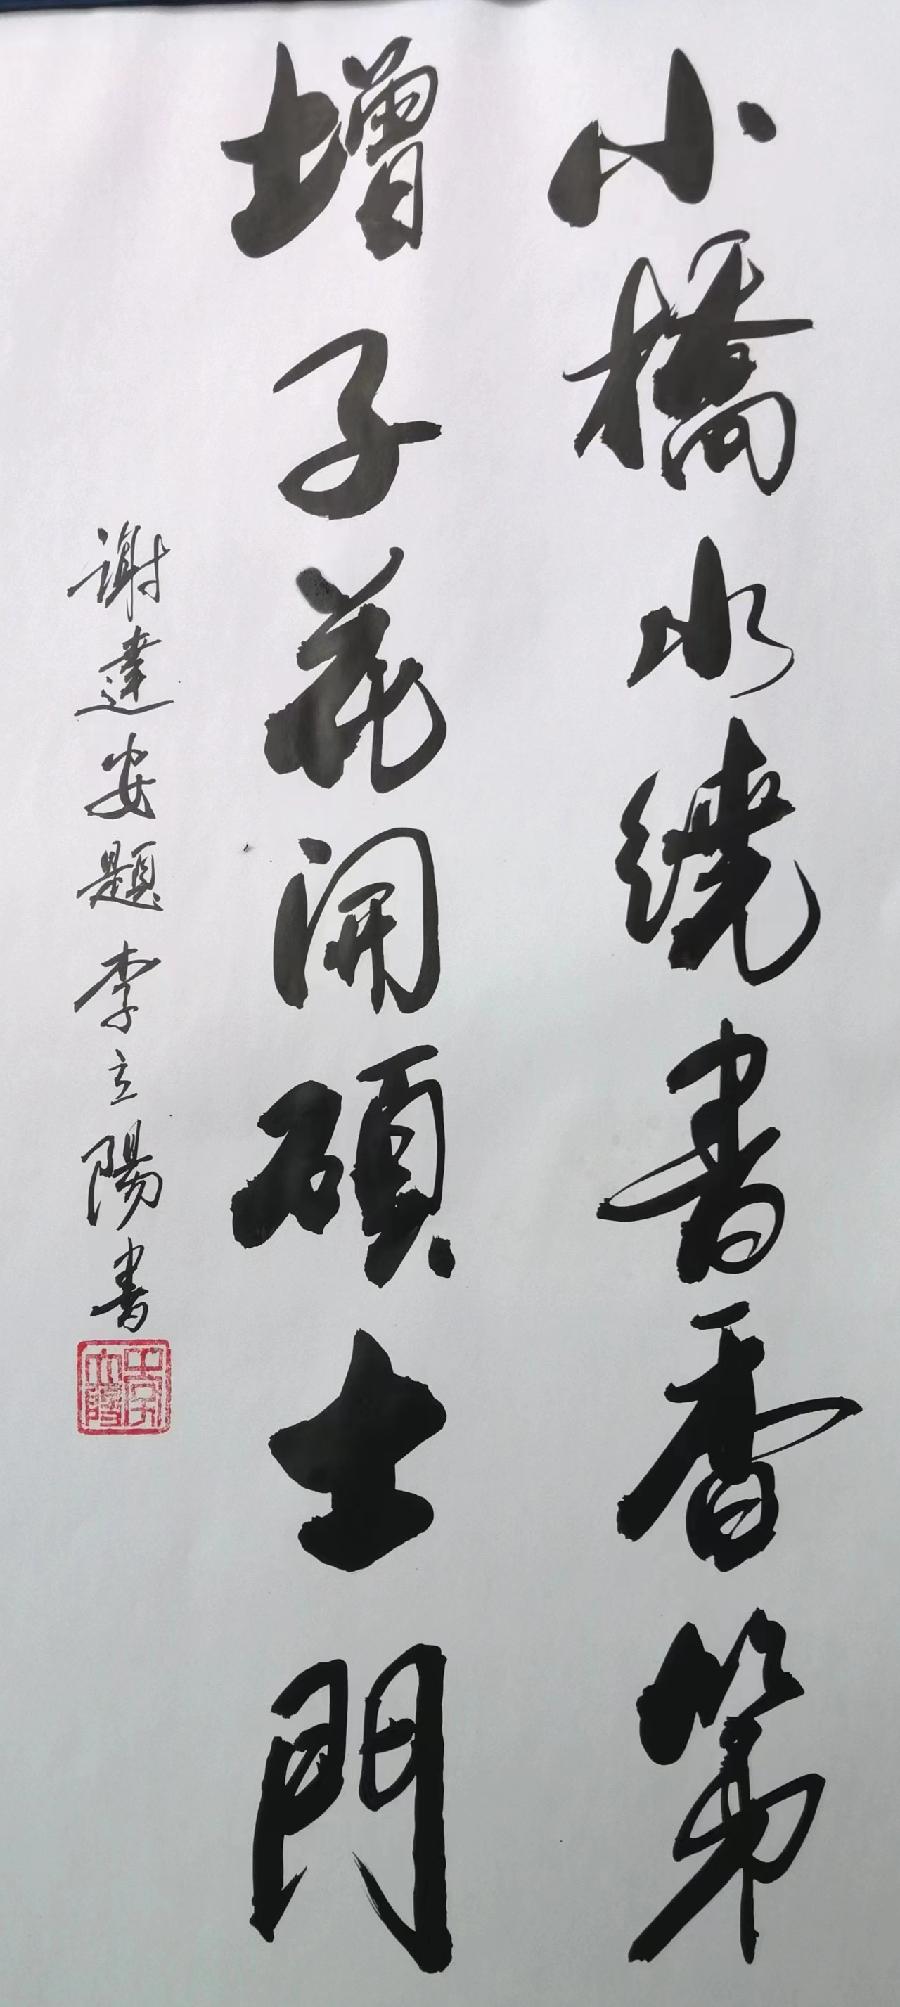 小橋水繞書香第
增子花開碩士門
謝達安題李立陽書